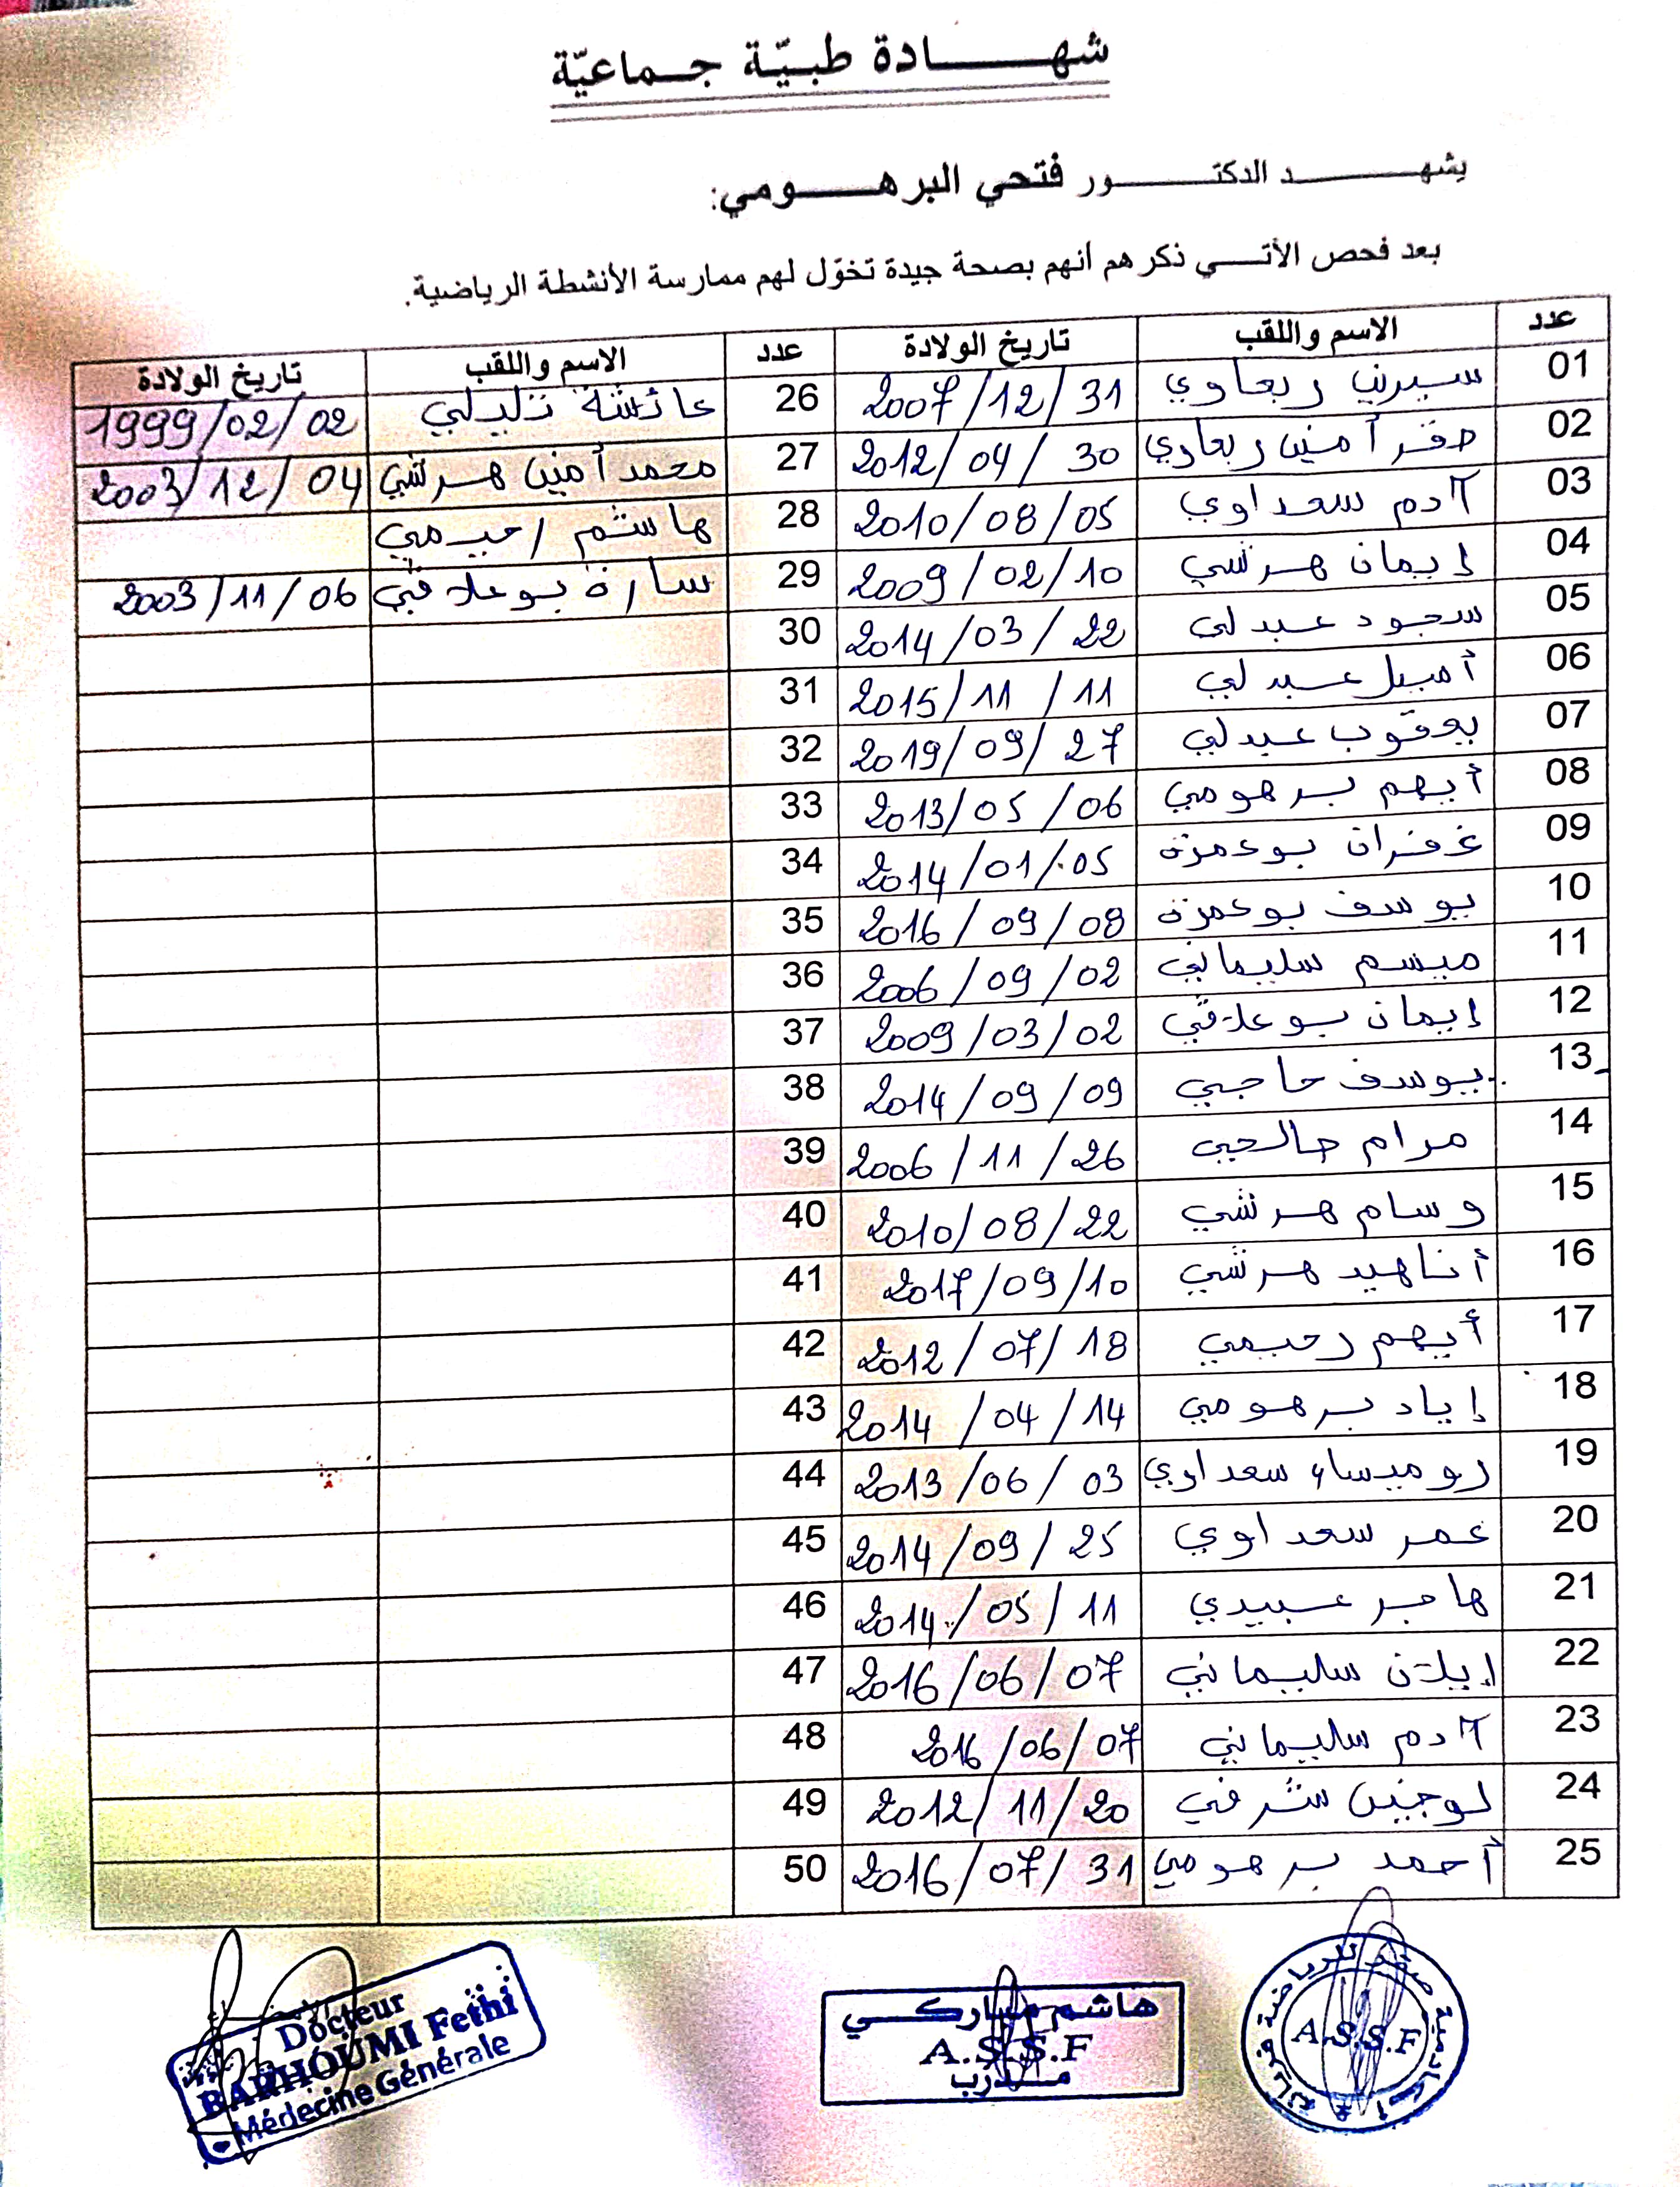 شهادة طبيّة جماعيّة
يشهد الدكتور فتحي البرهومي:
بعد فحص الأتي ذكرهم أنهم بصحة جيدة تخوّل لهم ممارسة الأنشطة الرياضية.
عدد الاسم واللقب تاريخ الولادة عدد الاسم واللقب تاريخ الولادة
01 سيرين ربعاوي 2007/12/31 26 عائشة تليلي 1999/02/02
02 صقر أمين ربعاوي 2012/04/30 27 محمد أمين هرشي 2003/12/04
03 آدم سعداوي 2010/08/05 28 هاشم رحيمي
04 إيمان هرشي 2009/02/10 29 سارة بوعلاقي 2003/11/06
05 سجود عبدلي 2014/03/22 30
06 أميل عبدلي 2015/11/11 31
07 يعقوب عبدلي 2019/09/27 32
08 أيهم برهومي 2013/05/06 33
09 غفران بوعمزة 2014/01/05 34
10 يوسف بوعمزة 2016/09/08 35
11 ميسم سليماني 2006/09/02 36
12 إيمان بوعلاقي 2009/03/02 37
13 يوسف حاجي 2014/09/09 38
14 مرام صالحي 2006/11/26 39
15 وسام هرشي 2010/08/22 40
16 أناهيد هرشي 2017/09/10 41
17 أيهم رحيمي 2012/07/18 42
18 إياد برهومي 2014/04/14 43
19 روميساء سعداوي 2013/06/03 44
20 عمر سعداوي 2014/09/25 45
21 هاجر عبيدي 2014/05/11 46
22 إيلان سليماني 2016/06/07 47
23 آدم سليماني 2016/06/07 48
24 لوجين شرفي 2012/11/20 49
25 أحمد برهومي 2016/07/31 50
أكاديمية صقر للرياضة فريانة
A.S.S.F
هاشم مباركي
A.S.S.F
مدرب
Docteur
BARHOUMI Fethi
Médecine Générale